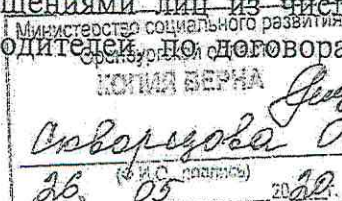 щениями лиц из чист
Министерство социального развития
одителей по договора
КОПИЯ ВЕРНА
Скворцова
(Ф.И.О., подпись)
26 05 2020г.